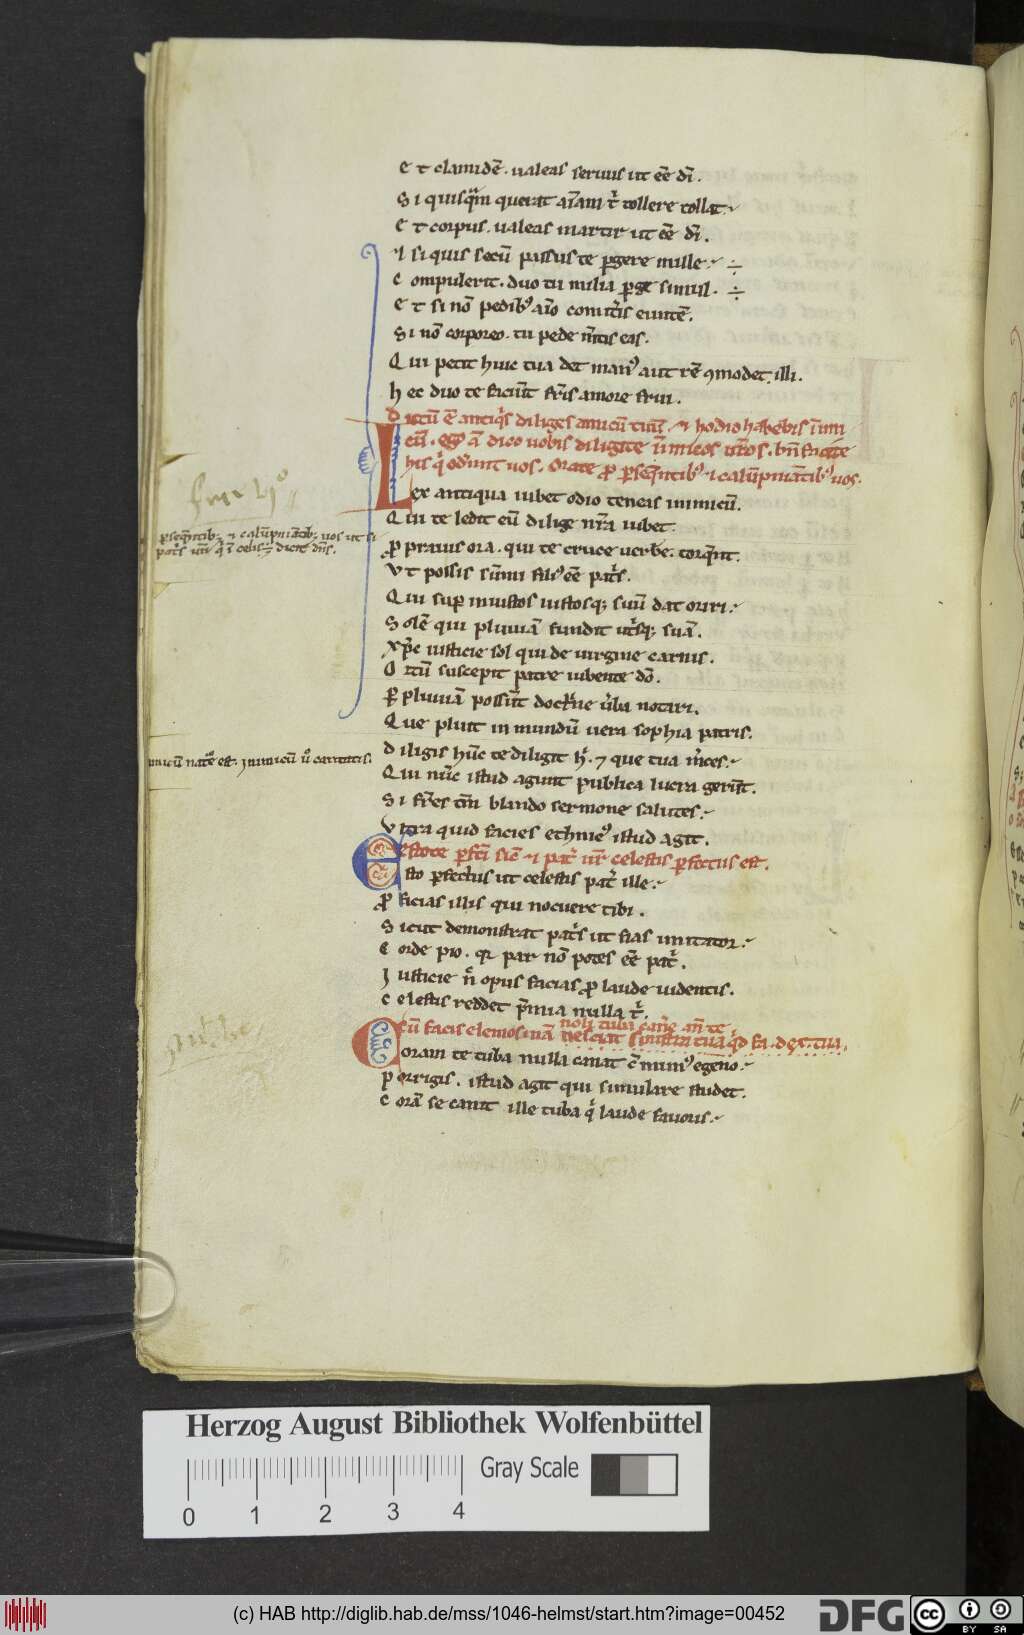 Et clamidē. ualeas seruus ut eē dī.
Si quisq̄m querat aīam t̄ tollere tollat
Et corpus. ualeas martir ut eē dī.
Vl si quis secū passus te pergere mille ÷
Compulerit. duo tu milia perge simul. ÷
Et si nō pedibꝰ aīo comit̄is euntē.
Si nō corporeo. tu pede m̄tis eas.
Qui petit huic tua det manꝰ aut rē ꝯmodet illi.
hec duo te faciūt fr̄is amore frui.
Dictū ē antiq̄s diliges amicū tuū. ⁊ hodio habebis inimi
cū. ego ā dico uobis diligite inimicos ur̄os. bn̄ facite
his q̄ oder̄unt uos. Orate ꝓ ꝑseq̄ntibꝰ ⁊ calūpniātibꝰ uos.
Lex antiqua iubet odio teneas inimicū.
Qui te ledit eū dilige nr̄a iubet.
ꝓ prauis ora. qui te cruce uerbē. torq̄nt.
Vt possis sūmi filiꝰ eē pat̄s.
Qui sup iniustos iustosq; suū dat oriri
Solē qui pluuiā fundit ut̄sq; suā.
Xp̄c iusticie sol qui de uirgine carnis.
Ortū suscepit patre iubente dō.
ꝑ pluuiā possūt doctrīne u̔ba notari.
Que pluit in mundū uera sophia patris.
Diligis hūc te diligit h̄. ⁊ que tua m̄ces
Qui nūc istud agunt publica lucra gerūt.
Si fr̄es tm̄ blando sermone salutes
Vltra quid facies ethnicꝰ istud agit.
Estote ꝑfc̄i sic̄ ⁊ pat̄ ur̄ celestis ꝑfectus est.
Esto ꝑfectus ut celestis pat̄ ille
ꝓficias illis qui nocuere tibi.
Sicut demonstrat pat̄s ut fias imitator
Corde pio. qr̄ par nō potes eē pat̄.
Iusticie n̄ opus facias ꝓ laude uidentis.
Celestis reddet p̄mia nulla t̄.
noli tuba can̄e añ te.
Cū facis elemosinā nesciat sinistra tua q̔d fa. dext̄ tua.
Coram te tuba nulla canat c̄ munꝰ egeno
Porrigis. istud agit qui simulare studet.
Corā se canit ille tuba q̄ laude fauoris
ꝑseq̄ntibꝫ ⁊ calūpniātibꝫ uos ut si
pat̄s ur̄i q̄ ī celis ē dicit dn̄s.
nat̄e est. inimicū u̔ caritatis.
Herzog August Bibliothek Wolfenbüttel
Gray Scale
0 1 2 3 4
(c) HAB http://diglib.hab.de/mss/1046-helmst/start.htm?image=00452
DFG
cc BY SA